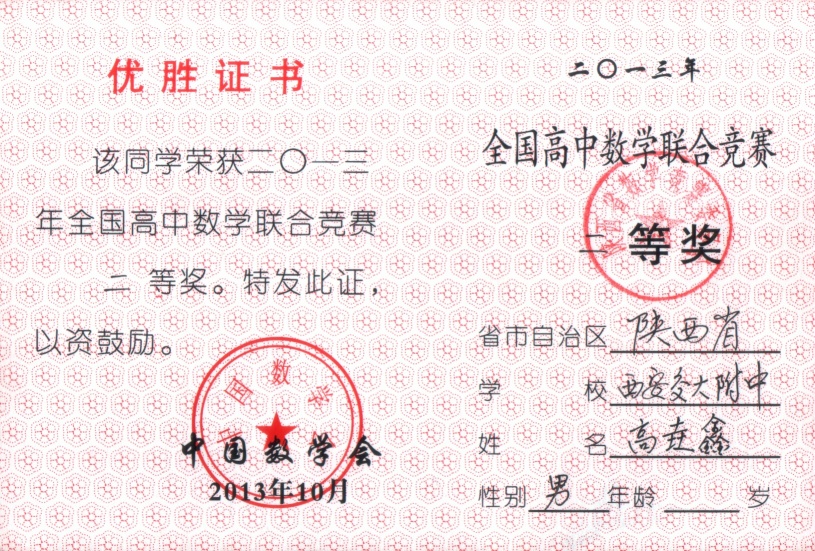 优胜证书
该同学荣获二〇一三
年全国高中数学联合竞赛
二 等奖。特发此证，
以资鼓励。
中国数学会
中国数学会
2013年10月
二〇一三年
全国高中数学联合竞赛
二 等奖
省市自治区 陕西省
学校 西安交大附中
姓名 高垚鑫
性别 男 年龄 岁